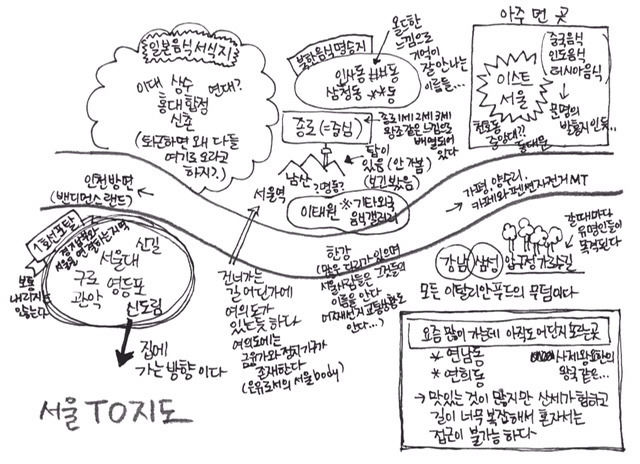 일본음식 서식지
이대 상수 연대?
홍대 합정
신촌
(퇴근하면 왜 다들
여기로 오라고
하지?)
북하음식 명승지
인사동 ㅂㅂ동
삼청동 **동
올드한
느낌으로
기억이
잘 안나는
이름들...
종로 (=중심)
종로 1세 2세 3세
왕조같은 느낌으로
배열되어
있다
남산
탑이
있음 (안 가봄)
(보긴 봤음)
아주 먼 곳
이스트
서울
중국음식
인도음식
러시아음식
문명의
천호동
중앙대??
동대문
인천방면
(밴디먼스 랜드)
서울역
?명동?
이태원 ※기타외국
음식갤러리
가평, 양수리,
카페와 펜션 자전거 MT
1호선포탈
서울을 연결하는지역
신길
서울대
구로 영등포
관악
신도림
보통
내리지는
않는다
집에
가는 방향이다
건너가는
길 어딘가에
여의도가
있는 듯 하다
여의도에는
금융가와 정치가가
존재한다
(은유로서의 서울 body)
한강
(많은 다리가 있으며
서울사람들은 그것들의
이름을 안다
어째선지 교통상황도
안다...)
강남 삼성 압구정 가로수길
갈때마다
유명인들이
목격된다
모든 이탈리안푸드의 무덤이다
요즘 많이 가는데 아직도 어딘지 모르는 곳
* 연남동
* 연희동
사제왕요한의
왕국 같은...
→ 맛있는 것이 많지만 산세가 험하고
길이 너무 복잡해서 혼자서는
접근이 불가능 하다
서울 TO 지도